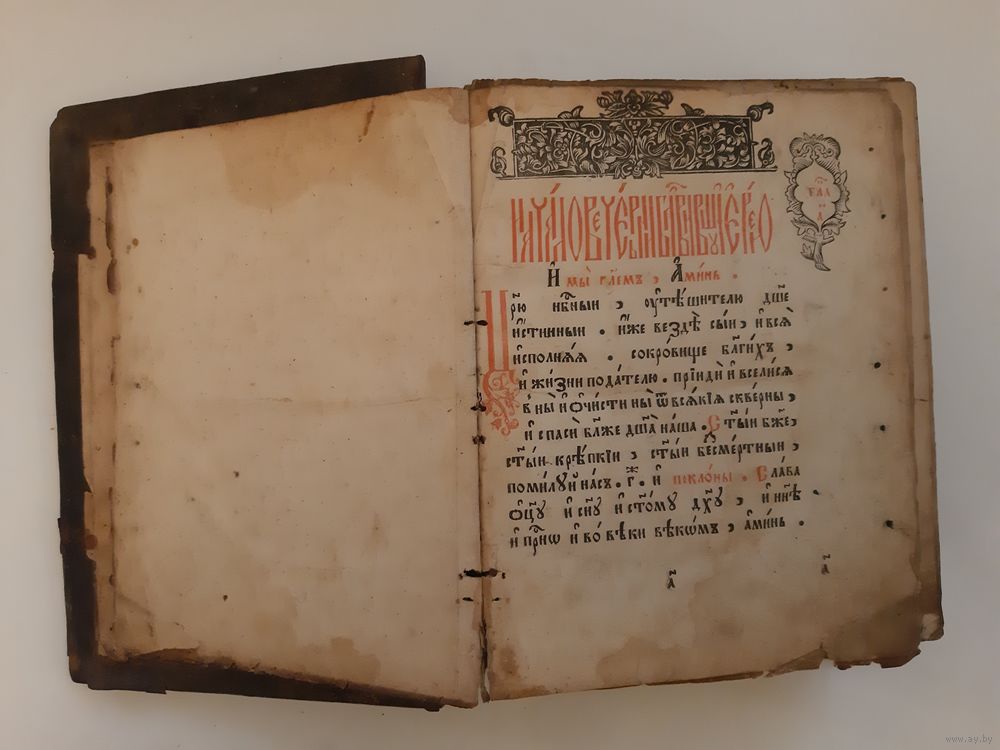 Нача́ло вече́рни бл҃гви́вшꙋ і҆ере́ю
И҆ мы̀ гл҃емъ , А҆ми́нь .
Цр҃ю нбⷭ҇ныи , ᲂу҆тѣ́шителю дш҃е
и҆́стинныи . и҆́же вездѣ̀ сы́и , и҆ всѧ̀
и҆сполнѧ́ѧ . сокро́вище бл҃ги́хъ ,
и҆ жи́зни пода́телю . прїидѝ и҆ всели́сѧ
в ны̀ и҆ ѡ҆чи́сти ны̀ ѿ всѧ́кїѧ скве́рны ,
и҆ спасѝ бл҃же дш҃а на́ша . Ст҃ы́и бж҃е ,
ст҃ы́и крѣ́пкїи , ст҃ы́и безсме́ртныи ,
поми́лꙋй на́съ . г҃ . и҆ покло́ны . Сла́ва
ѻ҆ц҃ꙋ̀ и҆ сн҃ꙋ и҆ ст҃о́мꙋ дх҃ꙋ , и҆ нн҃ѣ
и҆ прⷭ҇нѡ и҆ во́ вѣки вѣкѡ́мъ , а҆ми́нь .
а҃
а҃
www.ay.by